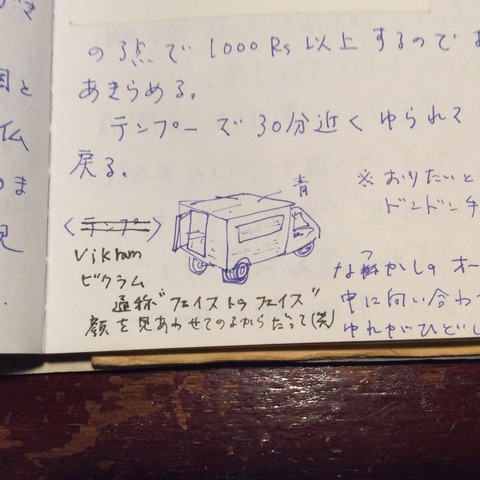 の3点で1000Rs以上するので
あきらめる。
テンプーで30分近くゆられて
戻る。
青
※おりたいと
ドンドンチ
〈テンプー〉
Vikram
ビクラム
通称"フェイストゥフェイズ"
顔を見あわせてのるからだって(笑)
なつかしのオー
中に向い合わ
ゆれがひどし
と
仏
ま
見